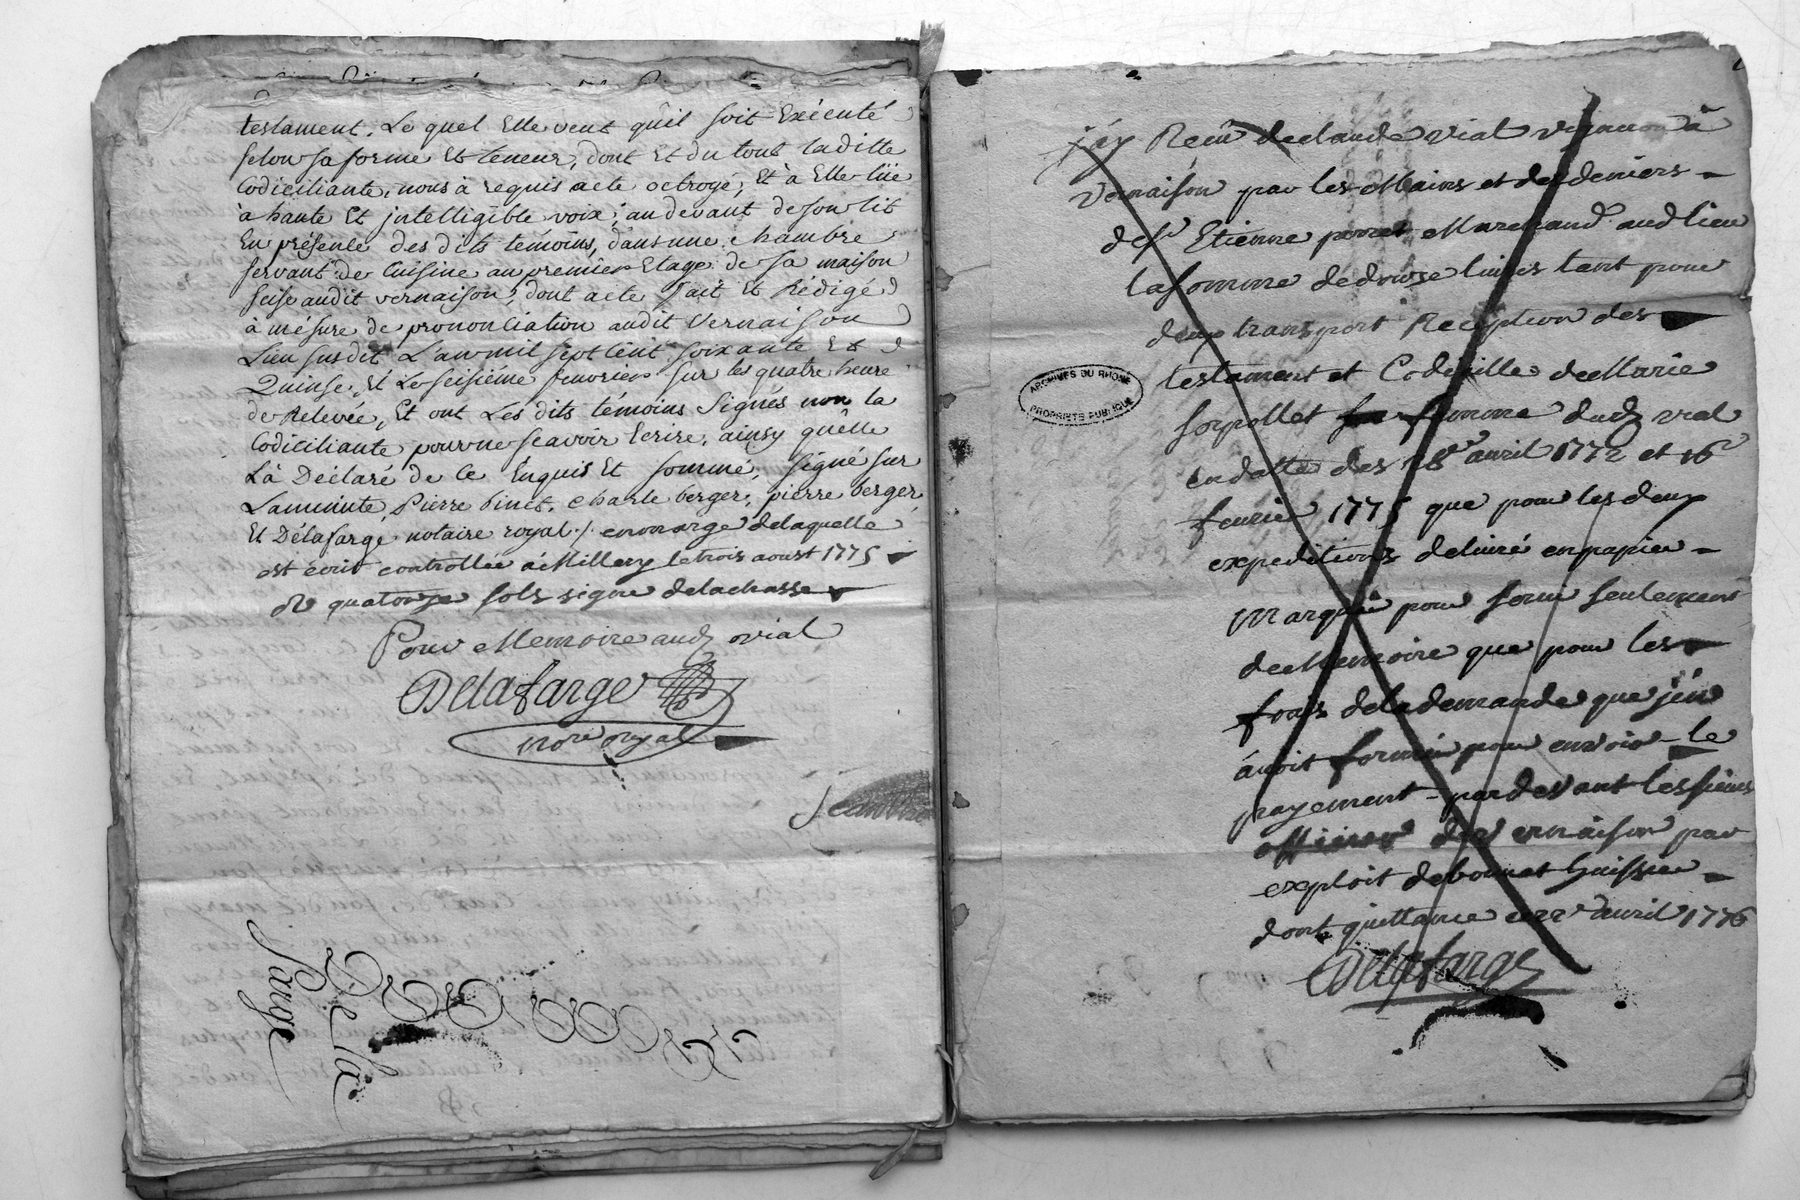 testament. Le quel Elle veut qu'il soit Exécuté
selon sa forme Et teneur, dont Et du tout laditte
Codiciliante, nous à requis acte octroyé, Et à Elle lüe
à haute Et jntelligible voix, au devant de son lit
En présence des dits témoins, dans une chambre
servant de Cuisine au premier Etage de sa maison
scise audit vernaison, dont acte fait Et Rédigé
à mésure de prononciation audit Vernaison
Lieu susdit L'an mil sept Cent soixante Et
Quinse, Et Le seisiéme fevrier sur les quatre heure
de Relevée, Et ont Les dits témoins Signés non la
Codiciliante pour ne scavoir Ecrire, ainsy qu'elle
La Déclaré de Ce Enquis Et sommé, signé sur
La minute, Pierre Pinet, charle berger, pierre berger,
Et Délafarge notaire royal ./. en marge de laquelle
est écrit controllée à Millery le trois aoust 1775
R quatorze sols signé delachasse
Pour Memoire aud vial
Delafarge
nore royal
Jean
De la
farge
j'ay Recû de claude vial vigneron à
Vernaison par les Mains et des deniers
de sr Etienne perret Marchand aud lieu
la somme de douze livres tant pour
deux transport Reception des
testament et Codicille de Marie
sorpollet femme dud vial
en datte des 18e avril 1772 et 16e
fevrier 1775 que pour les deux
expeditions delivré en papier
marquée pour servir seulement
de Memoire que pour les
frais de la demande que j'en
avoit formée pour avoir le
payement pardevant les sieurs
officiers de Vernaison par
exploit de bonnet huissier
dont quittance ce 22e avril 1776
Delafarge
ARCHIVES DU RHONE
PROPRIETE PUBLIQUE